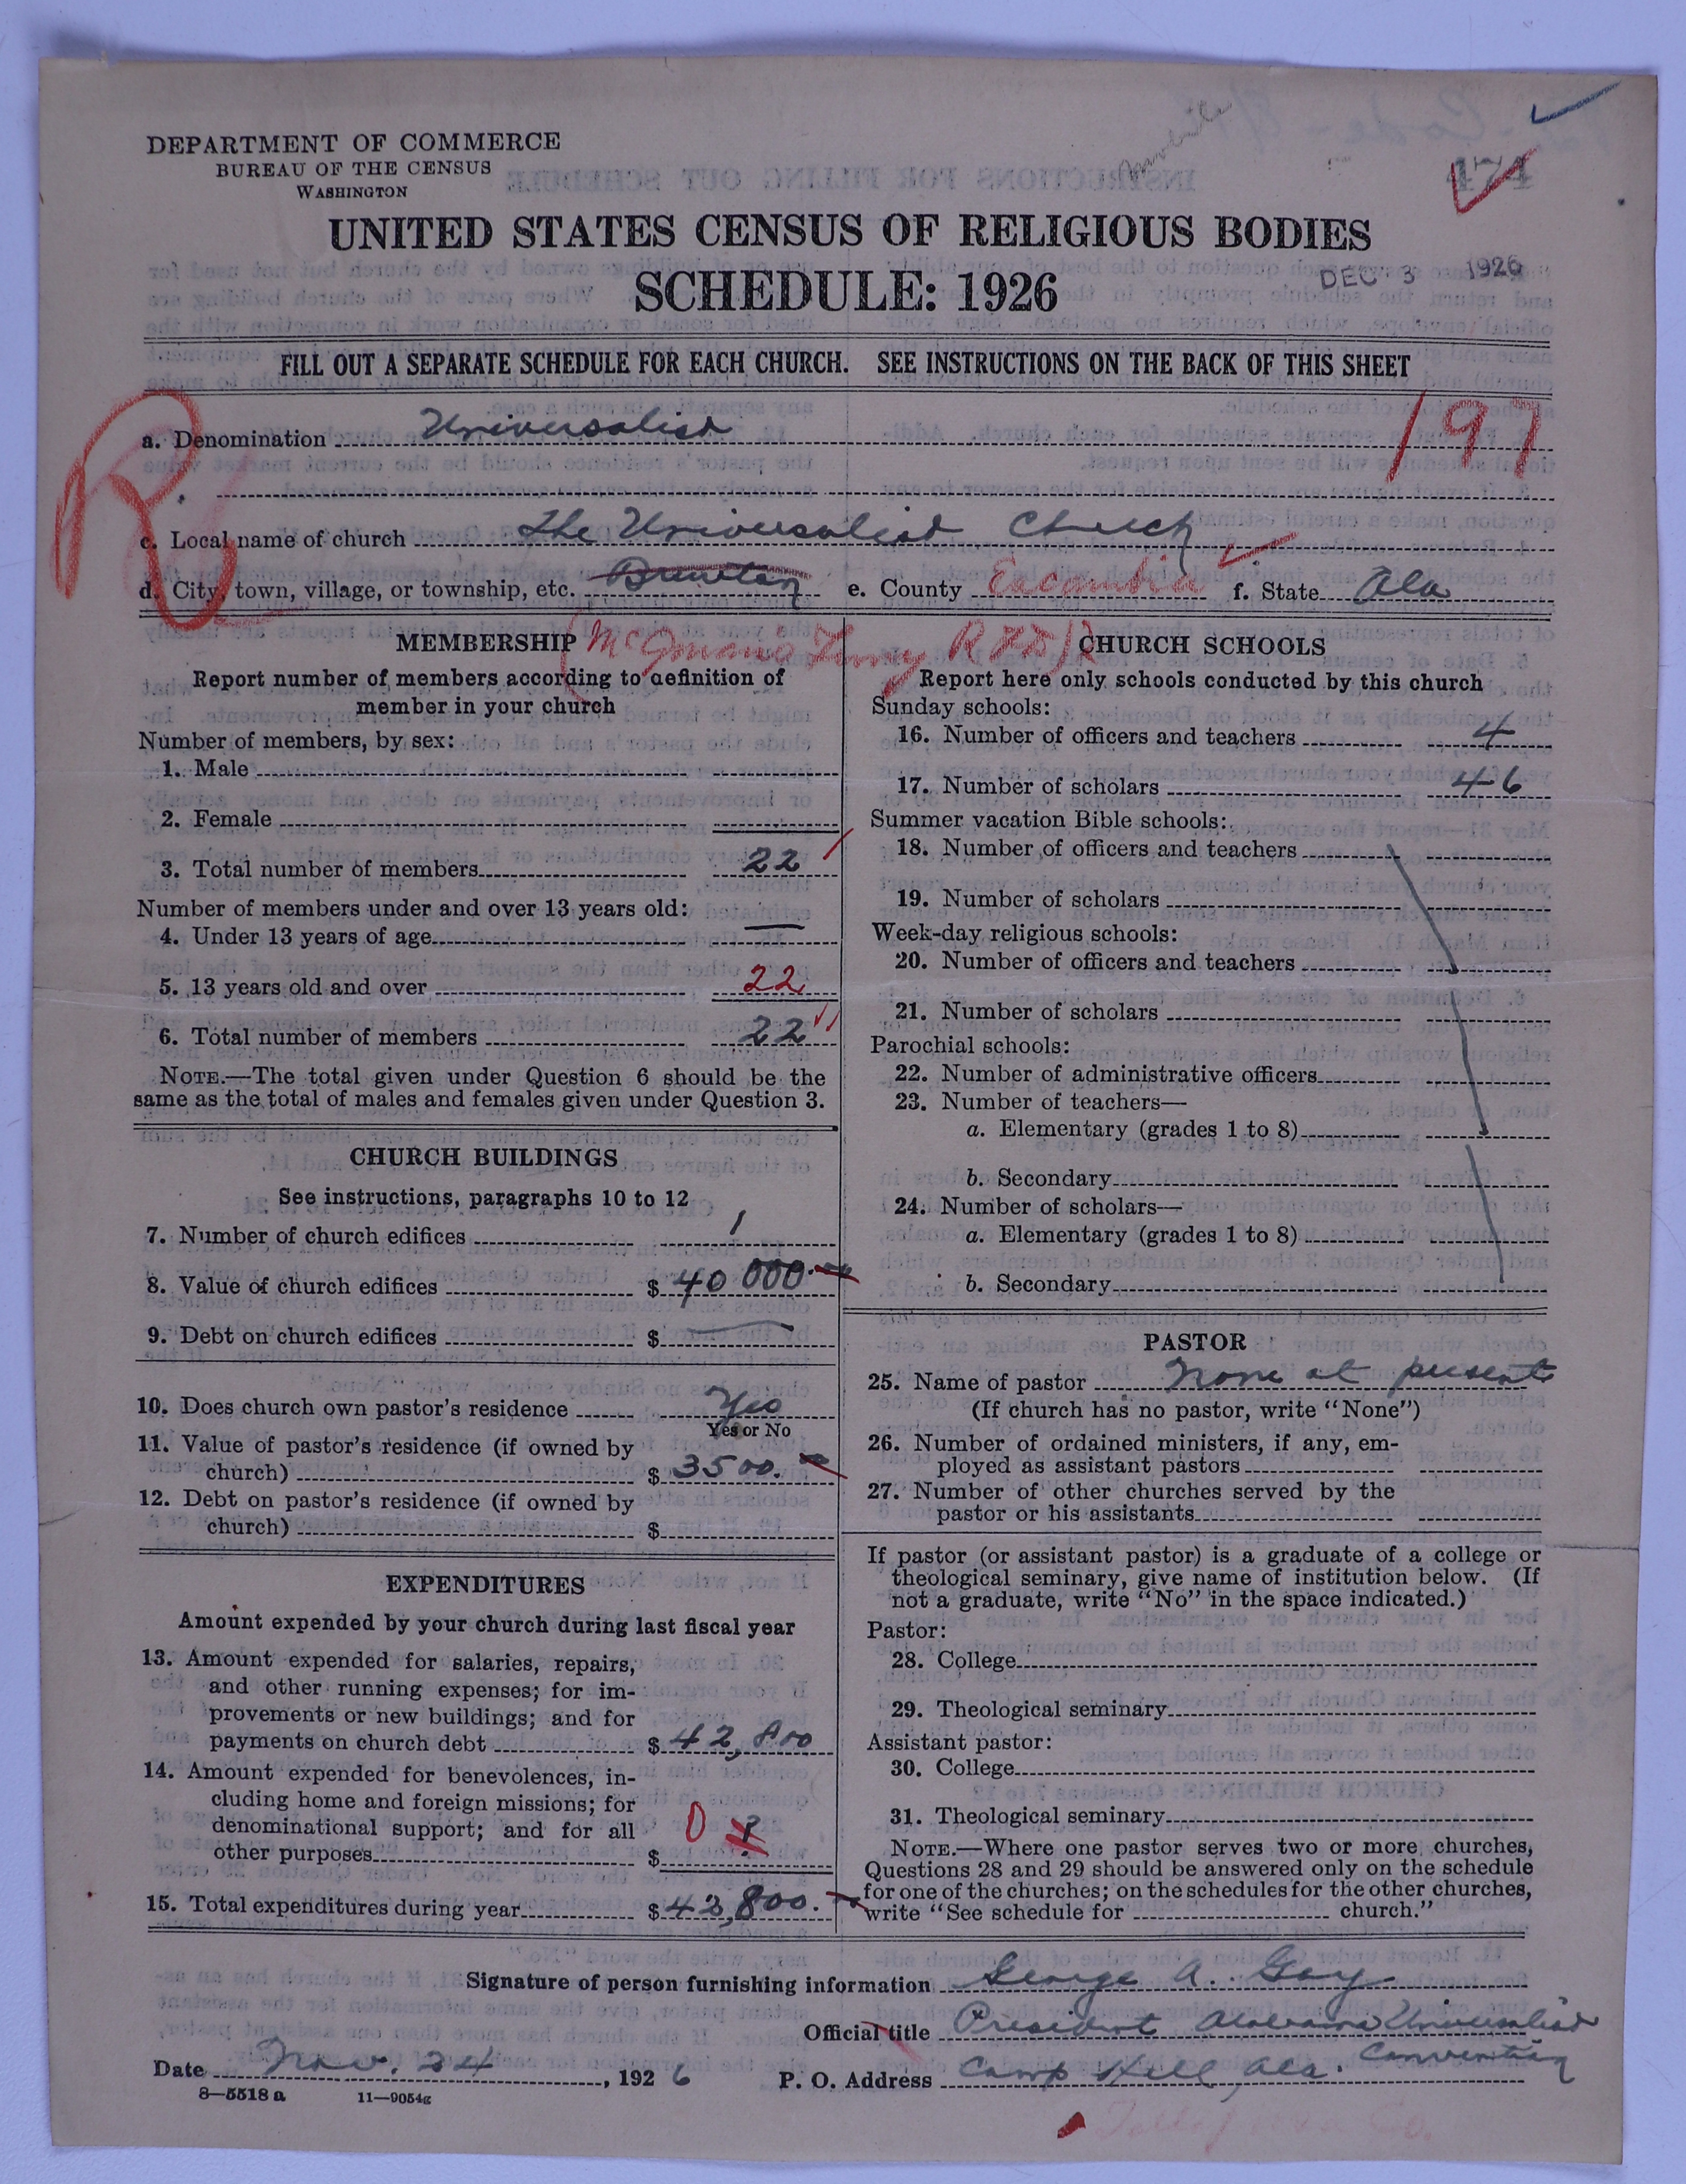 DEPARTMENT OF COMMERCE
BUREAU OF THE CENSUS
WASHINGTON
474
UNITED STATES CENSUS OF RELIGIOUS BODIES
SCHEDULE: 1926
DEC 3 1926
FILL OUT A SEPARATE SCHEDULE FOR EACH CHURCH. SEE INSTRUCTIONS ON THE BACK OF THIS SHEET
R
197
a. Denomination Universalist
c. Local name of church The Universalist Church
d. City, town, village, or township, etc. Brewton e. County Escambia f. State Ala
MEMBERSHIP
Report number of members according to definition of
member in your church
Number of members, by sex:
1. Male
2. Female
3. Total number of members 22
Number of members under and over 13 years old:
4. Under 13 years of age —
5. 13 years old and over 22
6. Total number of members 22
NOTE.—The total given under Question 6 should be the
same as the total of males and females given under Question 3.
CHURCH BUILDINGS
See instructions, paragraphs 10 to 12
7. Number of church edifices 1
8. Value of church edifices $ 40 000.
9. Debt on church edifices $ —
10. Does church own pastor's residence Yes
Yes or No
11. Value of pastor's residence (if owned by
church) $ 3500.
12. Debt on pastor's residence (if owned by
church) $
EXPENDITURES
Amount expended by your church during last fiscal year
13. Amount expended for salaries, repairs,
and other running expenses; for im-
provements or new buildings; and for
payments on church debt $ 42,800
14. Amount expended for benevolences, in-
cluding home and foreign missions; for
denominational support; and for all
other purposes $ 0 ?
15. Total expenditures during year $ 42,800.
(McGowans Ferry RFD)R
CHURCH SCHOOLS
Report here only schools conducted by this church
Sunday schools:
16. Number of officers and teachers 4
17. Number of scholars 46
Summer vacation Bible schools:
18. Number of officers and teachers
19. Number of scholars
Week-day religious schools:
20. Number of officers and teachers
21. Number of scholars
Parochial schools:
22. Number of administrative officers
23. Number of teachers—
a. Elementary (grades 1 to 8)
b. Secondary
24. Number of scholars—
a. Elementary (grades 1 to 8)
b. Secondary
PASTOR
25. Name of pastor None at present
(If church has no pastor, write "None")
26. Number of ordained ministers, if any, em-
ployed as assistant pastors
27. Number of other churches served by the
pastor or his assistants
If pastor (or assistant pastor) is a graduate of a college or
theological seminary, give name of institution below. (If
not a graduate, write "No" in the space indicated.)
Pastor:
28. College
29. Theological seminary
Assistant pastor:
30. College
31. Theological seminary
NOTE.—Where one pastor serves two or more churches,
Questions 28 and 29 should be answered only on the schedule
for one of the churches; on the schedules for the other churches,
write "See schedule for church."
Signature of person furnishing information George A. Gay
Official title President Alabama Universalist
Convention
Date Nov. 24, 1926 P. O. Address Camp Hill, Ala.
8—5518 a 11—9054g